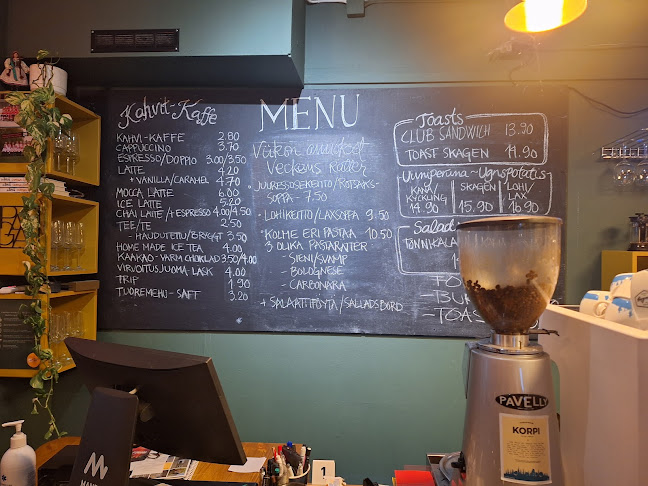 Kahvit-Kaffe
KAHVI-KAFFE 2.80
CAPPUCCINO 3.70
ESPRESSO/DOPPIO 3.00/3.50
LATTE 4.20
+VANILLA/CARAMEL 4.70
MOCCA LATTE 6.00
ICE LATTE 5.20
CHAI LATTE/+ESPRESSO 4.00/4.50
TEE/TE 2.50
-HAUDUTETTU/BRYGGT 3.50
HOME MADE ICE TEA 4.00
KAAKAO-VARM CHOKLAD 3.50/4.00
VIRVOITUSJUOMA-LÄSK 4.00
TRIP 1.90
TUOREMEHU-SAFT 3.20
MENU
Viikon annokset
Veckans rätter
*JUURESSOSEKEITTO/ROTSAKS-
SOPPA - 7.50
*LOHIKEITTO/LAXSOPPA 9.50
*KOLME ERI PASTAA 10.50
3 OLIKA PASTARÄTTER
- SIENI/SVAMP
- BOLOGNESE
- CARBONARA
+ SALAATTIPÖYTÄ/SALLADSBORD
Toasts
CLUB SANDWICH 13.90
TOAST SKAGEN 11.90
Uuniperuna ~ Ugnspotatis
KANA/KYCKLING 14.90
SKAGEN 15.90
LOHI/LAX 16.90
TONNIKALA
PAVELLY
KORPI
1